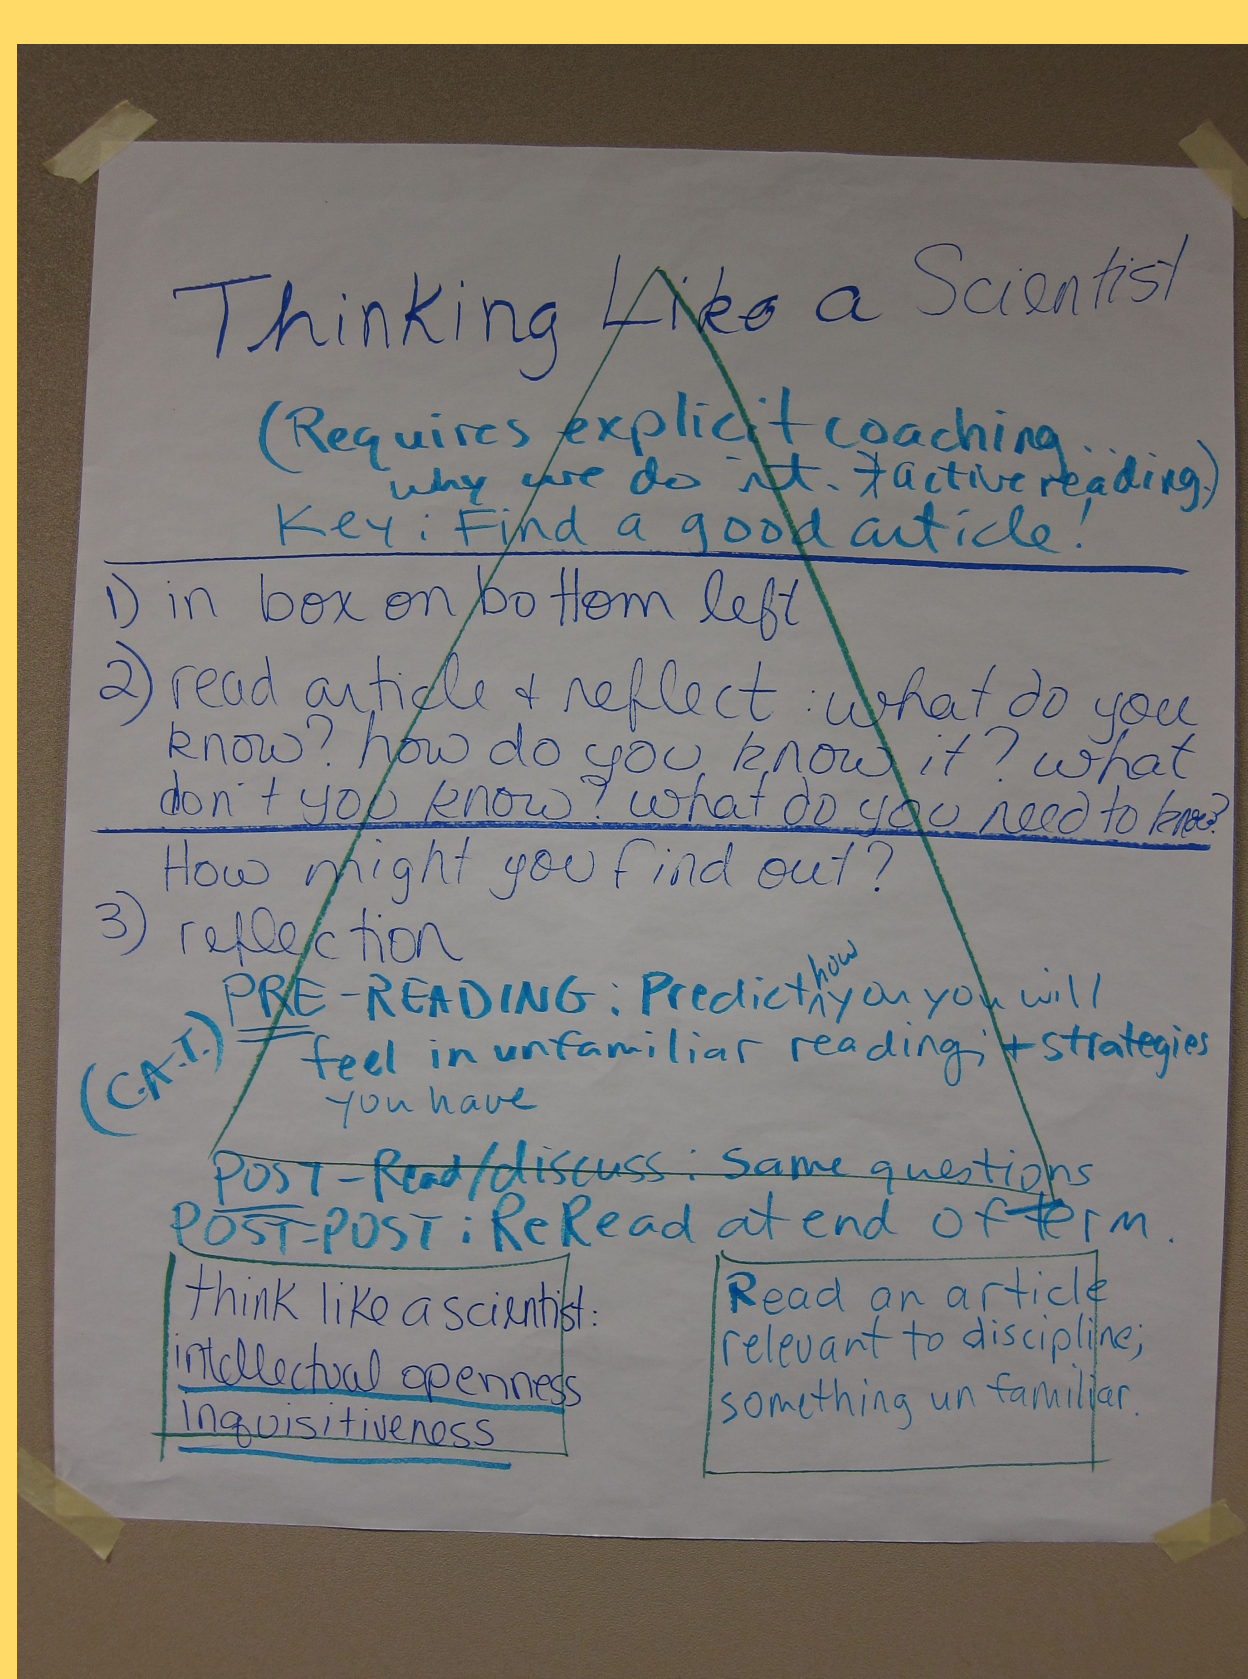 Thinking Like a Scientist
(Requires explicit coaching...
why we do it. + active reading.)
Key: Find a good article!
1) in box on bottom left
2) read article + reflect: what do you
know? how do you know it? what
don't you know? what do you need to know?
How might you find out?
3) reflection
how
PRE-READING: Predict ^ you you will
(C.A.T.) feel in unfamiliar reading; + strategies
you have
POST-Read/discuss: Same questions
POST-POST: ReRead at end of term.
think like a scientist:
intellectual openness
inquisitiveness
Read an article
relevant to discipline;
something unfamiliar.